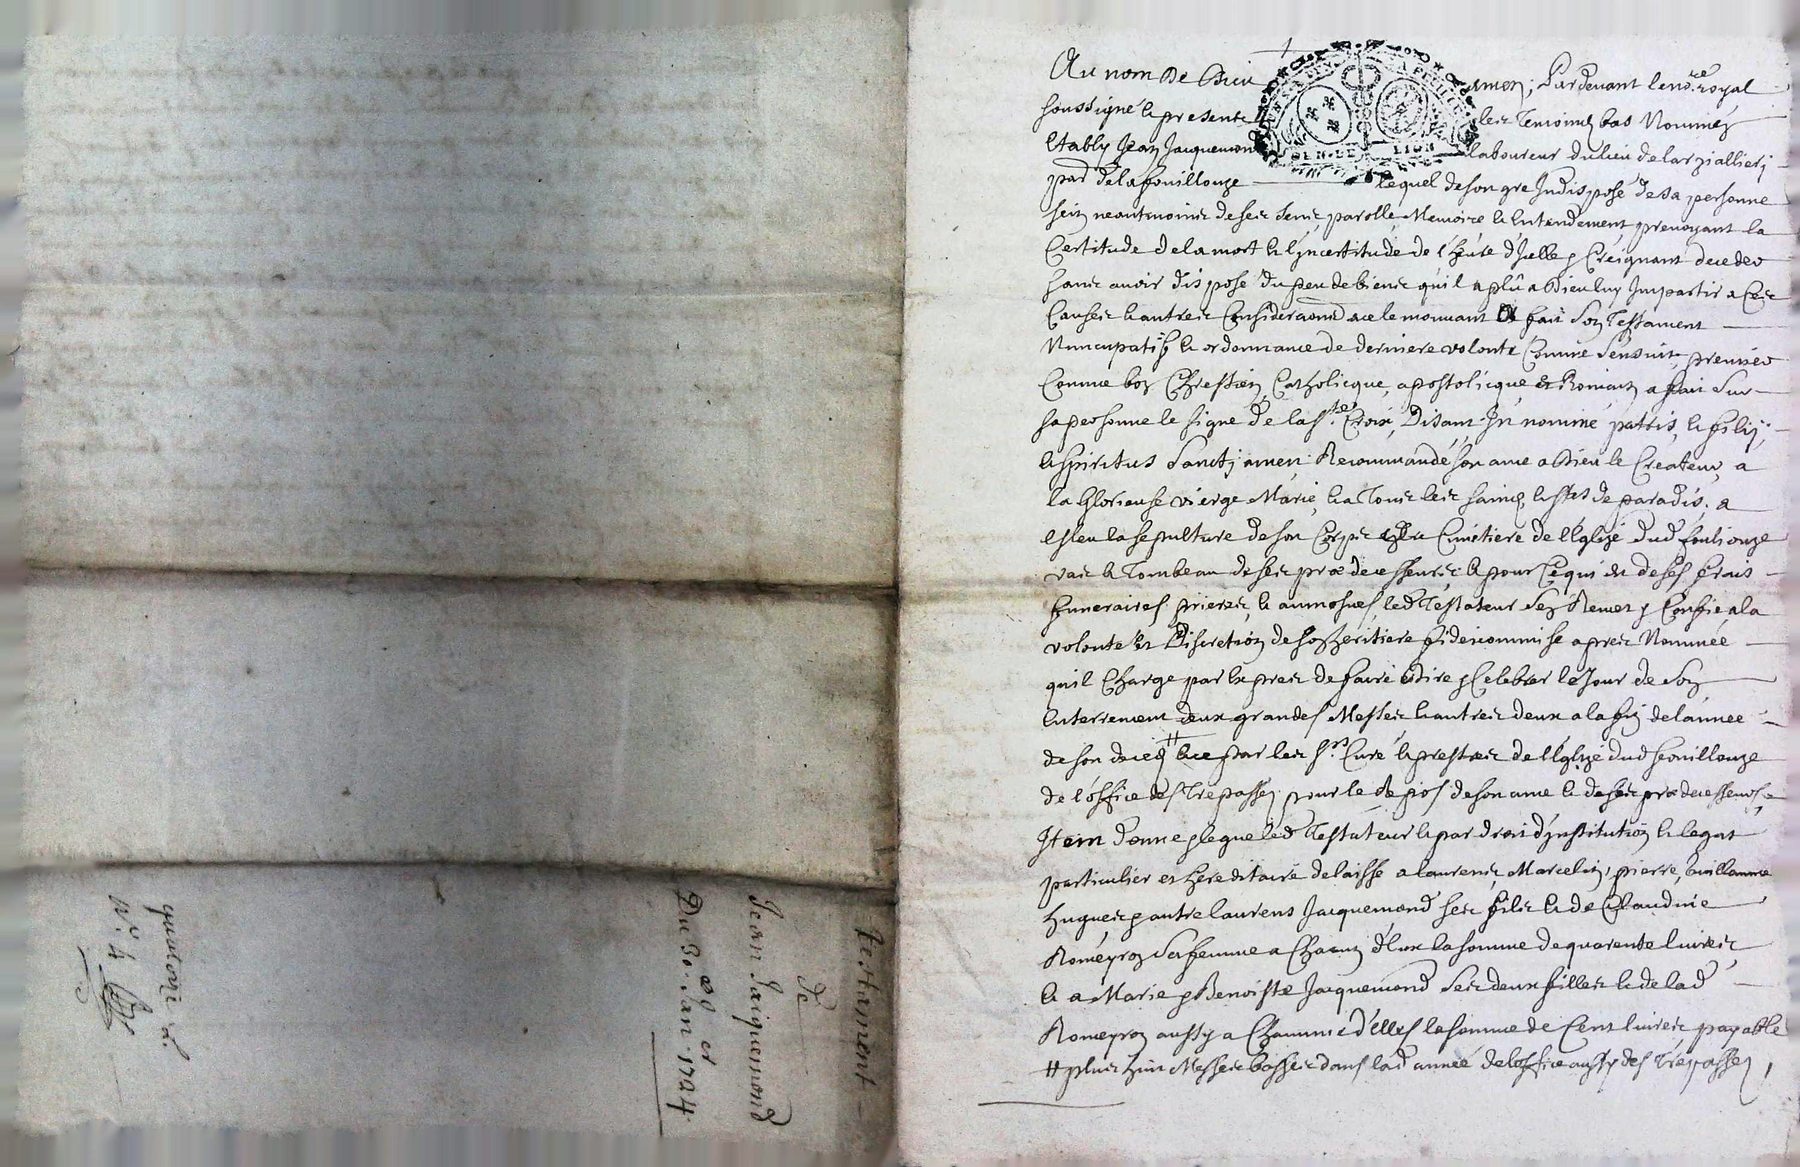 Testament
de
Jean Jacquemond
Du 30 Jan. 1724.
quatorze
n.º 4
Au nom de Dieu amen; Pardevant le no.re royal
soussigné & presents les temoins bas Nommés
Estably Jean Jacquemond laboureur du lieu de
par. de la fouillouze lequel de son gre Indisposé de sa personne
sein neantmoins de ses sens, parolle Memoire & Entendement, prevoyant la
Certitude de la mort & l'incertitude de l'heure d'Icelle & Creignant deceder
sans avoir disposé du peu de biens qu'il a plû a Dieu luy Impartir a Ces
Causes & autres Considerations a ce le mouvant a fait son Testament
Nuncupatif & ordonnance de derniere volonté Comme s'ensuit, premier
Comme bon Chrestien Catholicque, apostolicque et Romain a fait sur
sa personne le signe de la s.te Croix, Disant In nomine patris, & filij,
& spiritus sanctj amen Recommandé son ame a Dieu le Createur, a
la Glorieuse vierge Marie, & a Tous les saints & stes de paradis, a
esleu la sepulture de son Corps au Cimetiere de l'Eglize dud fouliouze
vas & Tombeau de ses predecesseurs & pour Ce qui est de ses frais
funeraires prieres & aumosnes led Testateur s'en Remet & Confie a la
volonté et Discretion de son heritiere fideicommise apres Nommée
qu'il Charge par Expres de faire dire & Celebrer le Jour de son
Enterrement deux grandes Messes & autres deux a la fin de l'annee
de son deces # & ce par les s.rs Curé & prestres de l'Eglize dud feouillouze
de l'office des Trepassez pour le Repos de son ame & de ses predecesseurs
Item donne & legue led Testateur & par droit d'institution & legat
particulier et hereditaire delaisse a laurens Marcelin, pierre, Guillaume
hugues & autre laurens Jacquemond ses fils & de Claudine
Romeyron sa femme a Chacun d'Eux la somme de quarente livres
& a Marie & Benoiste Jacquemond ses deux filles & de lad
Romeyron aussy a Chacune d'Elles la somme de Cent livres payable
# plus huit Messes basses dans lad année de l'office aussy des Trepassez,